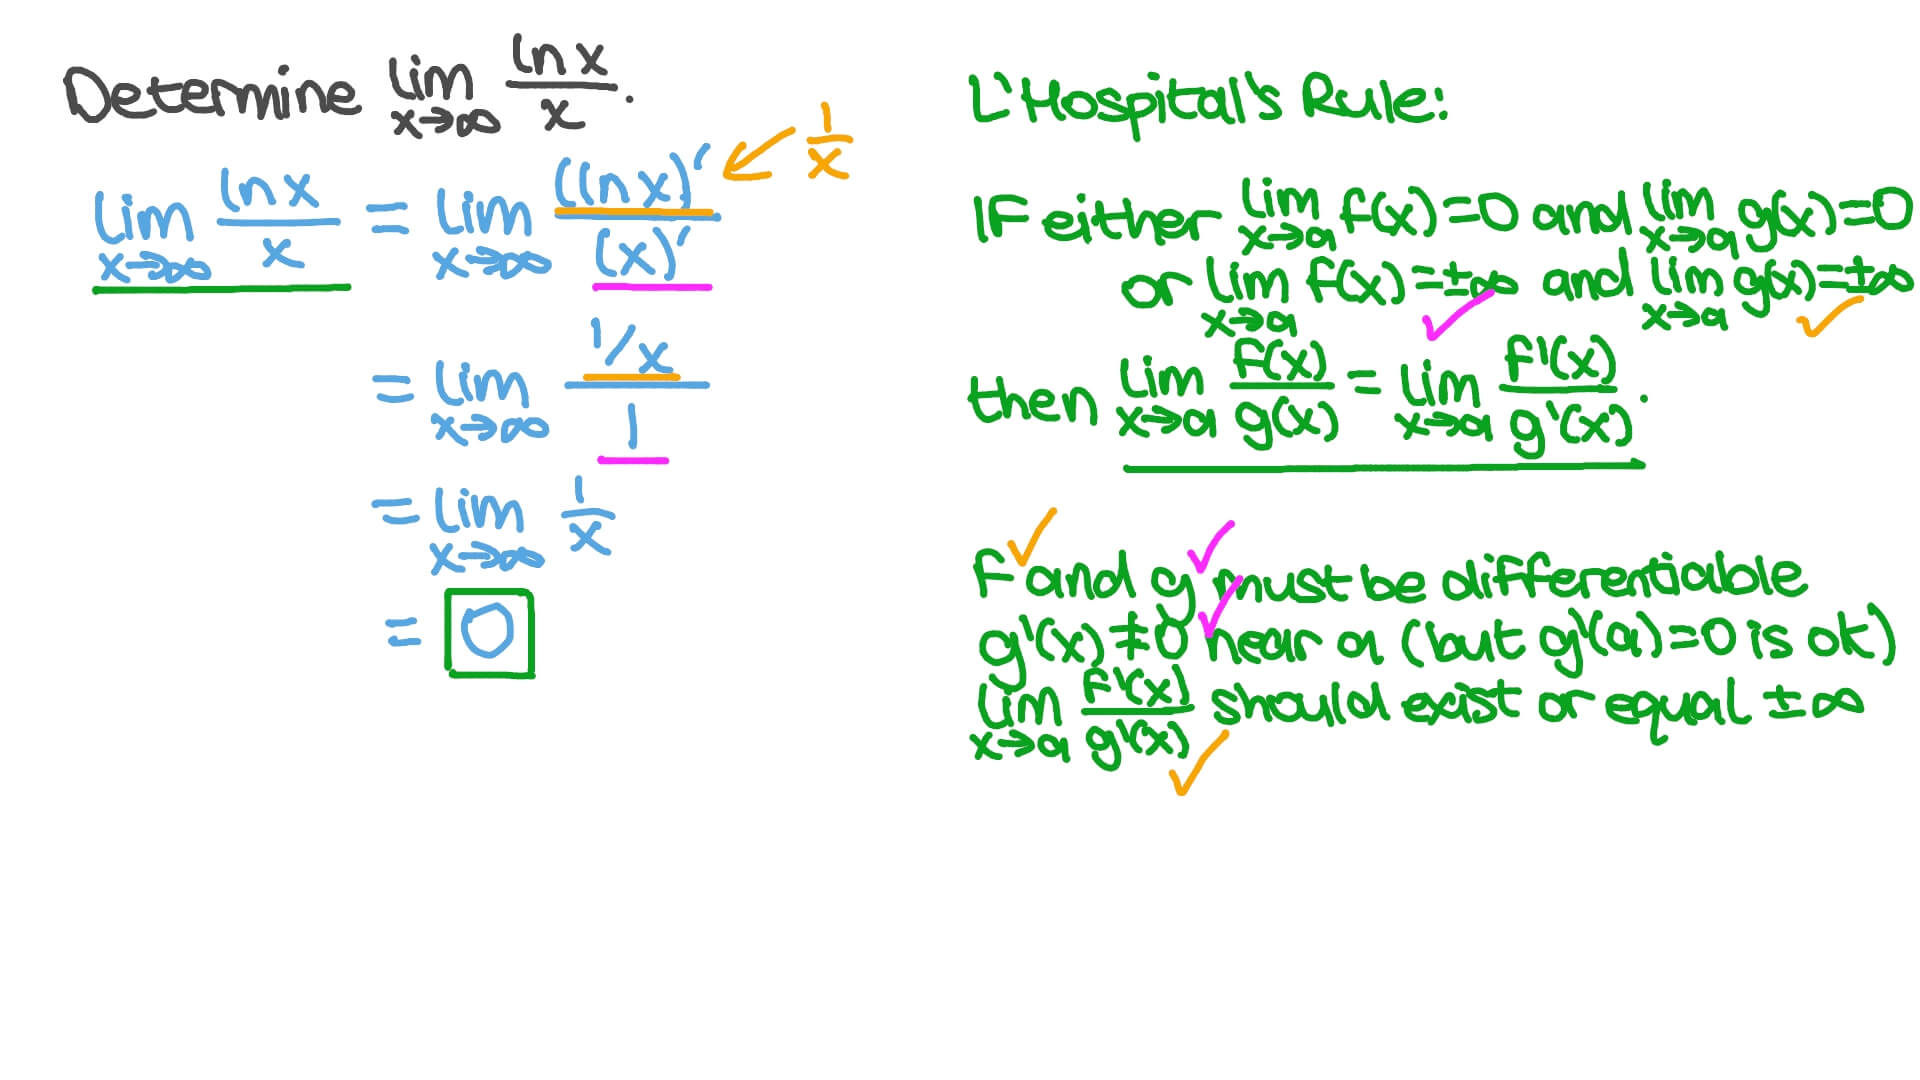 Determine lim x→∞ ln x / x .
lim x→∞ ln x / x = lim x→∞ (ln x)' / (x)' ← 1/x
= lim x→∞ 1/x / 1
= lim x→∞ 1/x
= 0
L'Hospital's Rule:
If either lim x→a f(x)=0 and lim x→a g(x)=0
or lim x→a f(x)=±∞ and lim x→a g(x)=±∞
then lim x→a f(x)/g(x) = lim x→a f'(x)/g'(x) .
f and g must be differentiable
g'(x)≠0 near a (but g'(a)=0 is ok)
lim x→a f'(x)/g'(x) should exist or equal ±∞